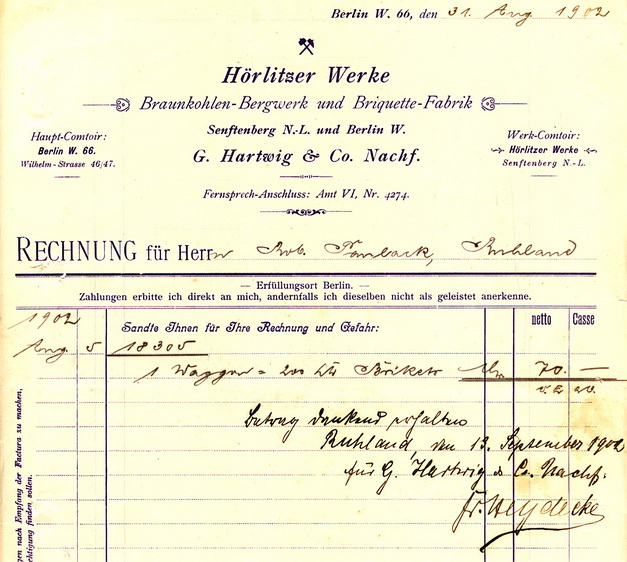 Berlin W. 66, den 31. Aug. 1902
Hörlitzer Werke
Braunkohlen-Bergwerk und Briquette-Fabrik
Senftenberg N.-L. und Berlin W.
G. Hartwig & Co. Nachf.
Haupt-Comtoir:
Berlin W. 66.
Wilhelm-Strasse 46/47.
Werk-Comtoir:
Hörlitzer Werke
Senftenberg N.-L.
Fernsprech-Anschluss: Amt VI, Nr. 4274.
RECHNUNG für Herrn Rob. Ruhland
— Erfüllungsort Berlin. —
Zahlungen erbitte ich direkt an mich, andernfalls ich dieselben nicht als geleistet anerkenne.
1902
Sandte Ihnen für Ihre Rechnung und Gefahr:
netto
Casse
Aug 5 18305
1 Waggon = 200 Ctr Brikets 70. —
Betrag dankend erhalten
Ruhland, den 13. September 1902
für G. Hartwig & Co. Nachf.
Fr. Heydecke
gen nach Empfang der Factura zu machen,
chtigung finden sollen.